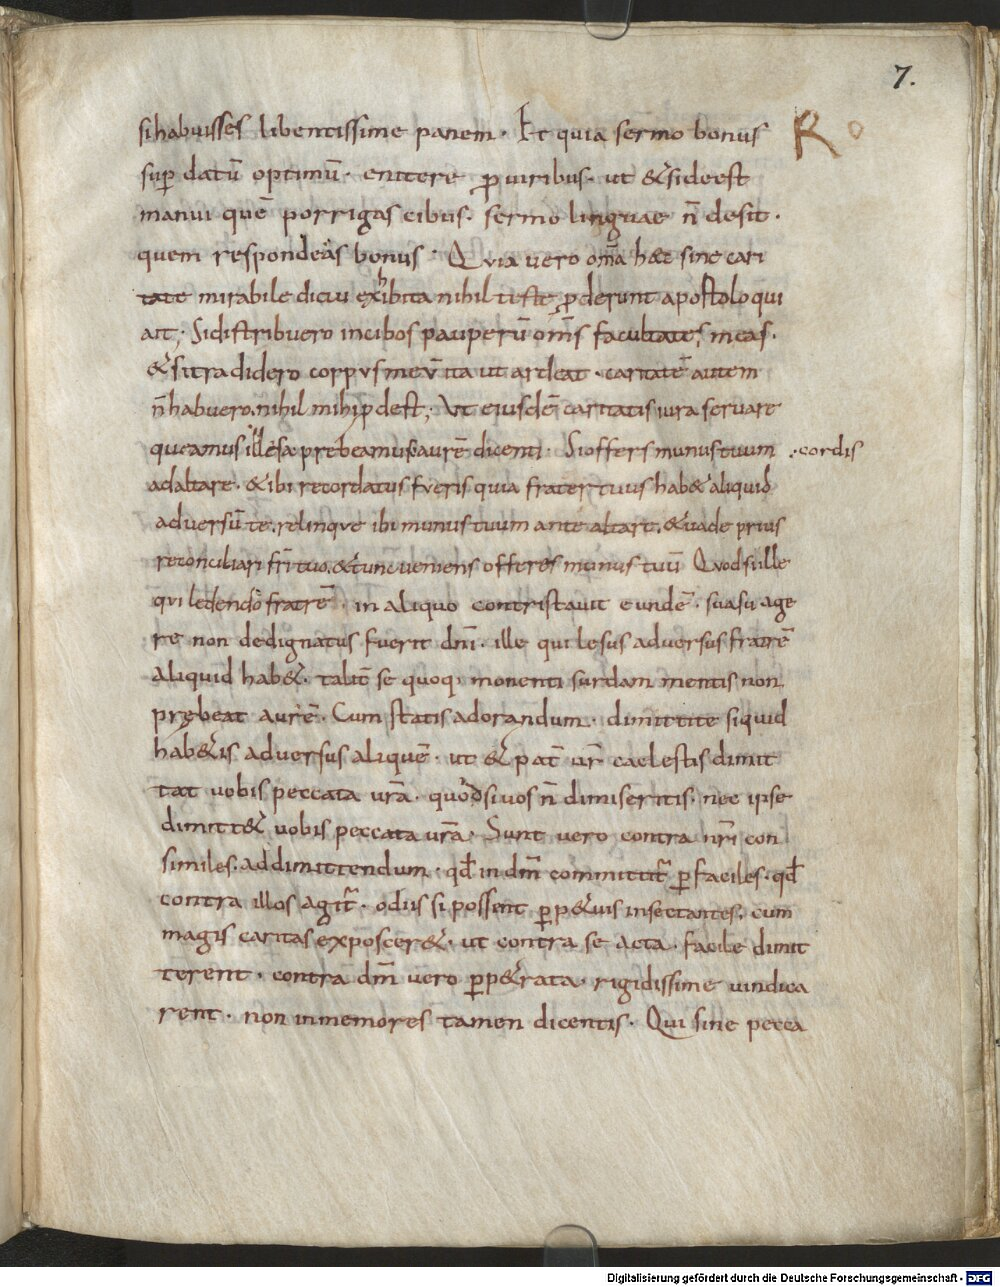 7.
si habuisses libentissime panem. Et quia sermo bonus R
sup̄ datū optimū. enitere ꝓ viribus. ut & si deest
manui quē porrigas cibus. sermo linguae n̄ desit.
quem respondeas bonus. Quia uero om̄a hæc sine cari
tate mirabile dictu exhibita nihil teste ꝓderunt apostolo qui
ait; Si distribuero in cibos pauperū om̄s facultates meas.
& si tradidero corpus meū ita ut ardeat. caritatē autem
n̄ habuero. nihil mihi ꝓdest; Ut eiusdē caritatis iura seruare
queamus illesa prebeamus aurē dicenti. Si offers munus tuum .cordis
ad altare. & ibi recordatus fueris quia frater tuus hab& aliquid
aduersū te. relinque ibi munus tuum ante altare. & uade prius
reconciliari fr̄i tuo. & tunc ueniens offeres munus tuū Quod si ille
qui ledendo fratrē. in aliquo contristauit eundē. suasu age
re non dedignatus fuerit dn̄i. ille qui lesus aduersus fratrē
aliquid hab&. talit̄ se quoq; monenti surdam mentis non
prębeat aurē. Cum statis ad orandum. dimittite si quid
hab&is aduersus aliquē. ut & pat̄ ur̄ caelestis dimit
tat uobis peccata ur̄a. quod si uos n̄ dimiseritis. nec ipse
dimitt& uobis peccata ur̄a. Sunt uero contra nr̄i con
similes. ad dimittendum. qd̄ in dn̄m committit̄ ꝑfaciles. qd̄
contra illos agit̄. odiis si possent ꝑp&uis insectantes. cum
magis caritas exposcer&. ut contra se acta. facile dimit
terent. contra dn̄m uero ꝑp&rata. rigidissime uindica
rent. non inmemores tamen dicentis. Qui sine pecca
Digitalisierung gefördert durch die Deutsche Forschungsgemeinschaft - DFG